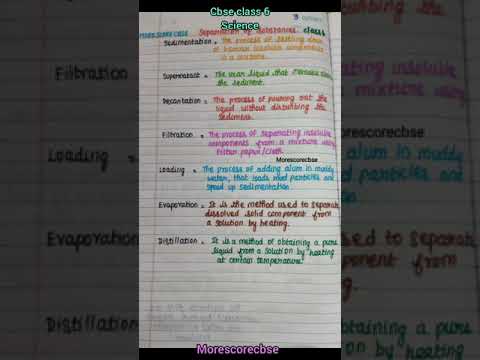 Cbse class 6
Science
MORE SCORE CBSE Separation of Substances class 6
Sedimentation = The process of settling down
of heavier insoluble components
in a mixture.
Supernatant = The clean liquid that remains above
the sediment.
Decantation = The process of pouring out the
liquid without disturbing the
sediment.
Filtration = The process of separating insoluble
components from a mixture using
filter paper/cloth
Morescorecbse
Loading = The process of adding alum in muddy
water, that loads mud particles and
speed up sedimentation.
Evaporation = It is the method used to separate
dissolved solid component from
a solution by heating.
Distillation = It is a method of obtaining a pure
liquid from a solution by heating
at certain temperature.
Filtration
Loading
Evaporation
Distillation
ting insoluble
mixture using
alum in muddy
d particles and
ed to separate
component from
ng.
btaining a pure
on by heating
Morescorecbse